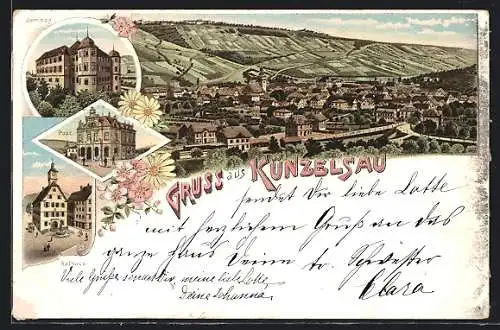 Seminar
Post
Rathaus
GRUSS aus KÜNZELSAU
sendet Dir liebe Lotte
mit herzlichem Gruß an das
ganze Haus Deine tr. Schwester
Clara
Viele Grüße sendet Dir, meine liebe Lotte,
Deine Johanna.